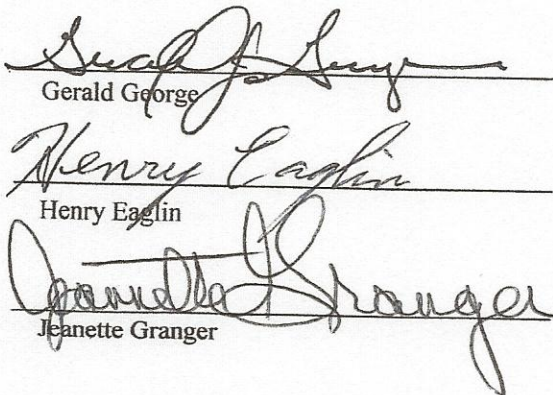 Gerald J. George
Gerald George
Henry Eaglin
Henry Eaglin
Jeannette Granger
Jeanette Granger